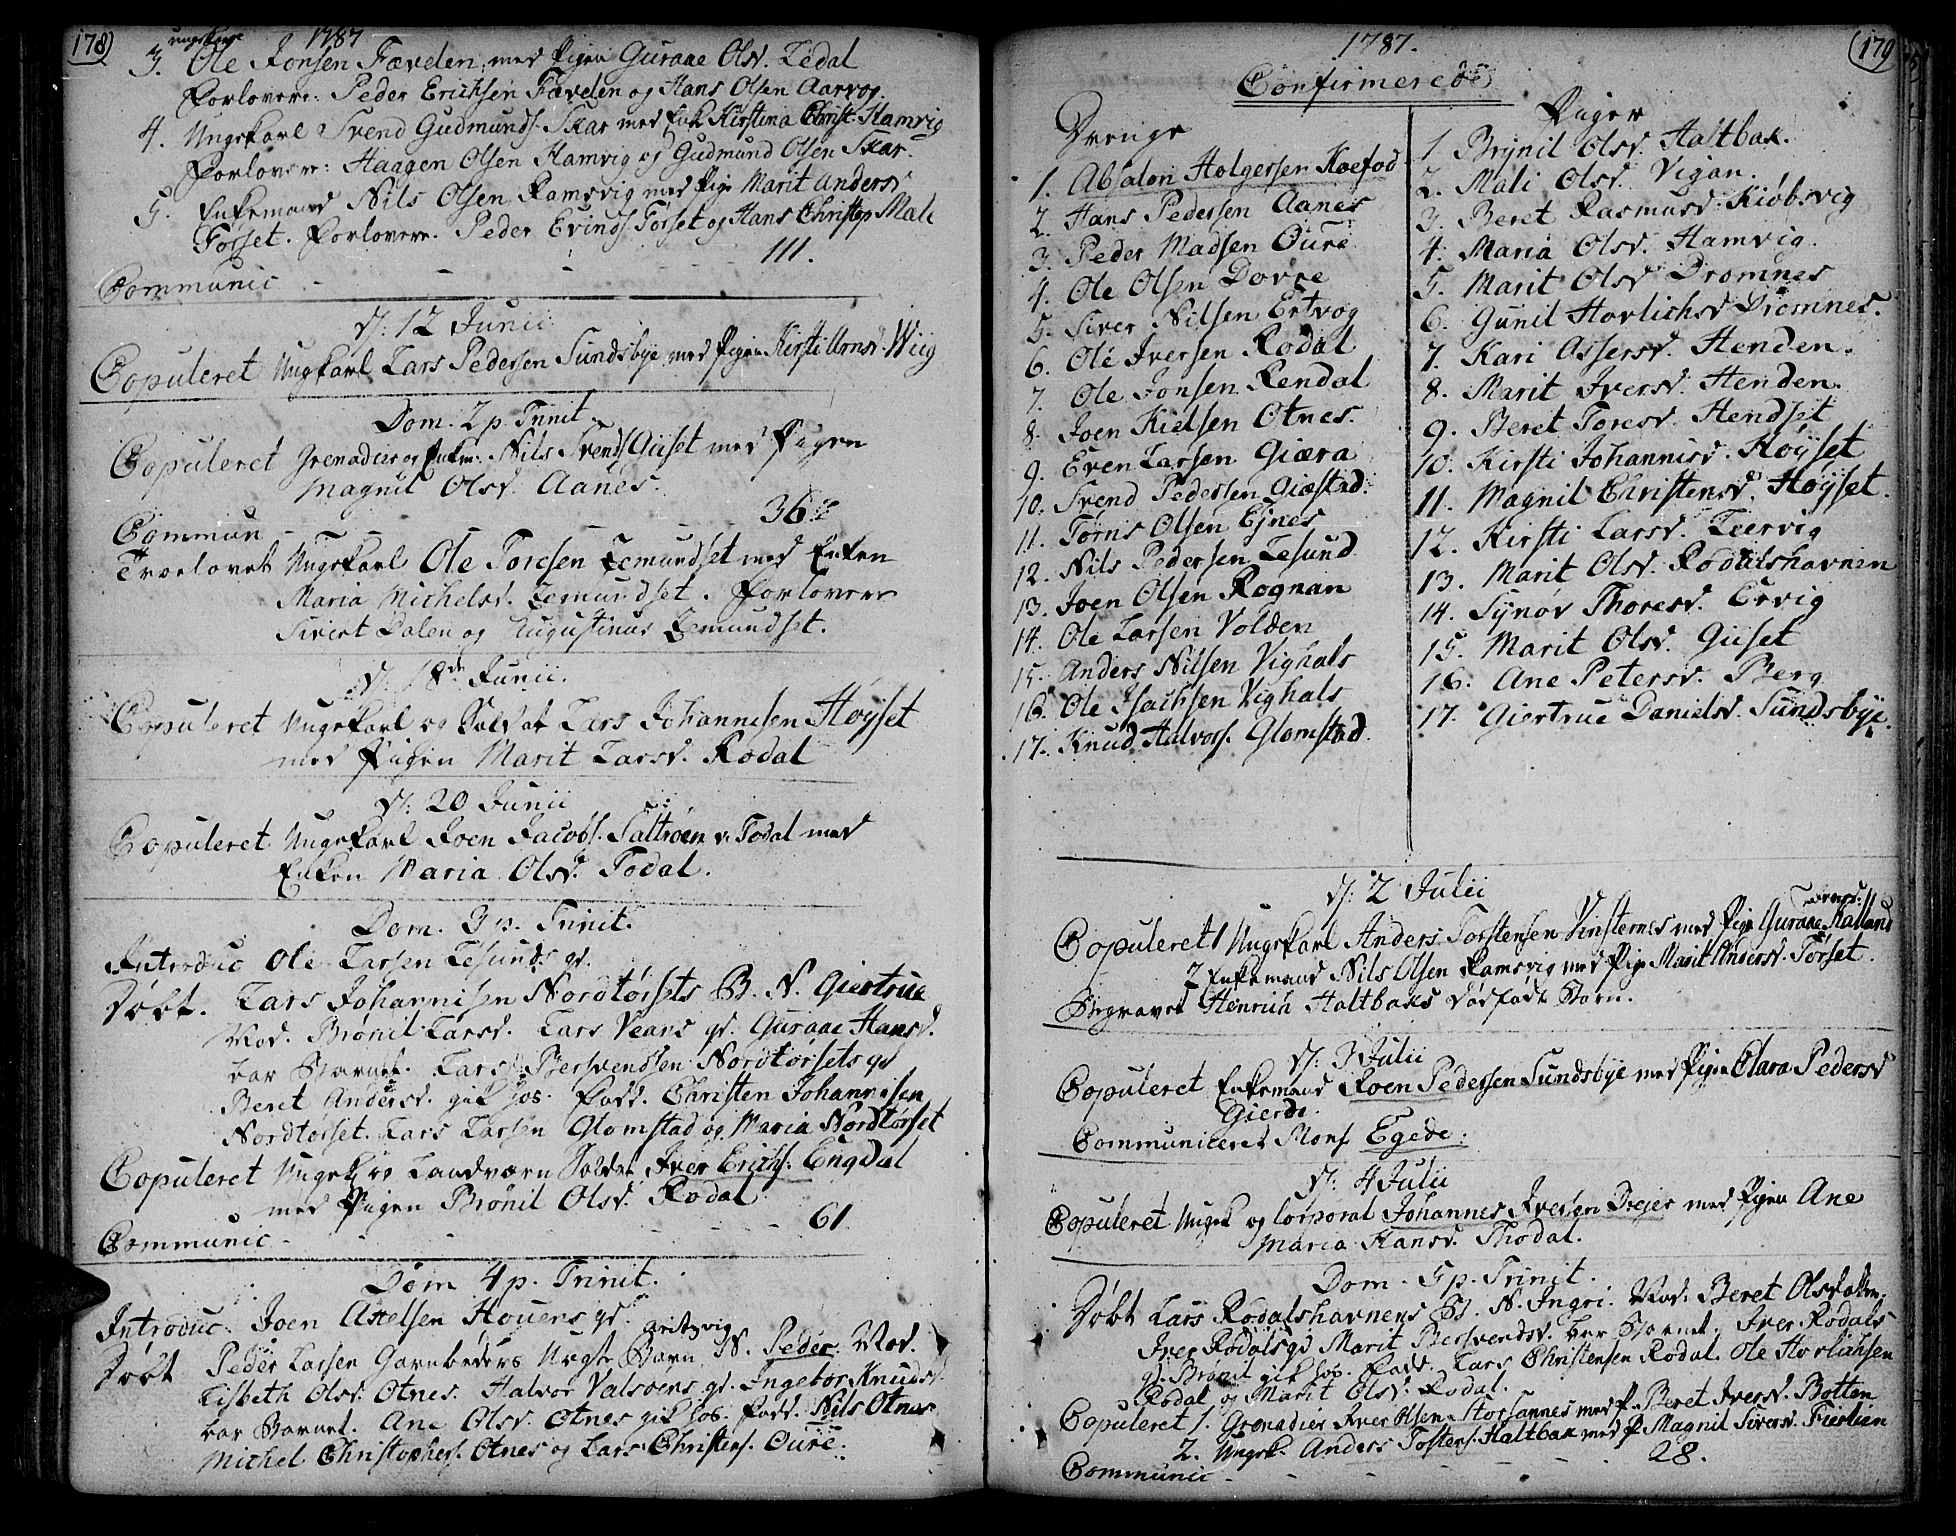 178)
1787
ungekarl
3. Ole Jonsen Fævelen, med Pigen Guraae Olsd. Ledal
Forlovere: Peder Erichsen Fævelen og Hans Olsen Aarvog.
4. Ungekarl Svend Gudmunds. Skar med Enke Kirstina Christ. Hamvig
Forlovere: Haagen Olsen Hamvig og Gudmund Olsen Skar.
5. Enkemand Nils Olsen Ramsvig med Pige Marit Andersd
Torset. Forlovere. Peder Evinds. Torset og Hans Christop Mali
Communic - - - - 111.
d: 12 Junii
Copuleret Ungkarl Lars Pedersen Sundsbye med Pigen Kirsti Arnsd. Wiig
Dom. 2 p. Trinit.
Copuleret Grenadeer og Enkm: Nils Svends. Giiset med Pigen
Magnil Olsd. Aanes.
Commun - - 36
Troelovet Ungekarl Ole Toresen Lemundset med Enken
Maria Michelsd. Lemundset. Forlovere
Sivert Dalen og Augustinus Lemundset.
d: 18de Junii.
Copuleret Ungekarl og Soldat Lars Johannesen Høyset
med Pigen Marit Larsd. Rodal
d: 20 Junii
Copuleret Ungekarl Roen Jacobs. Saltrøen v. Todal med
Enken Maria Olsd. Todal.
Dom. 3 p. Trinit.
Introduc Ole Larsen Lesunds qv.
Døbt. Lars Johannisen Nordtørsets B. N. Giertrue
Mod. Brønil Larsd. Lars Veans qv. Guraae Hansd.
bar Barnet. Lars Bersvendsen Nordtørsets qv
Beret Andersd. gik hos. Fadd. Christen Johannesen
Nordtørset. Lars Larsen Glomstad og Maria Nordtørset
Copuleret Ungek og Landværn Soldat Iver Erichs. Engdal
med Pigen Brønil Olsd. Rodal
Communic - - - - 61
Dom 4 p. Trinit.
Introduc. Joen Axelsen Houens qv.
Døbt Peder Larsen Garnbeders Uægte Barn N. Peder. Mod.
Lisbeth Olsd. Otnes. Halvor Valsøens qv. Ingebor Knudsd.
bar Barnet. Ane Olsd. Otnes gik hos. Fadd. Nils Otnes
Michel Christophers. Otnes og Lars Christens. Oure.
179
1787.
Confirmerede
Drenge
1. Absalon Holgersen Koefod
2. Hans Pedersen Aanes
3. Peder Madsen Oure
4. Ole Olsen Dovre
5. Siver Nilsen Ertvog
6. Ole Iversen Rodal
7. Ole Jonsen Rendal
8. Joen Kielsen Otnes.
9. Even Larsen Giæra
10. Svend Pedersen Giæstad.
11. Tørris Olsen Ejnes
12. Nils Pedersen Lesund
13. Joen Olsen Rognan
14. Ole Larsen Volden
15. Anders Nilsen Vighals
16. Ole Isachsen Vighals
17. Knud Halvors. Glomstad.
Piger
1. Brynil Olsd. Haltbak.
2. Mali Olsd. Vigan.
3. Beret Rasmusd. Kiøbsvig
4. Maria Olsd. Hamvig.
5. Marit Olsd Dromnes
6. Gunil Horlichsd Dromnes.
7. Kari Assersd. Henden.
8. Marit Iversd. Henden.
9. Beret Toresd. Hendset
10. Kirsti Johannisd. Høyset
11. Magnil Christensd. Høyset.
12. Kirsti Larsd. Leervig
13. Marit Olsd. Rodalshavnen
14. Synøv Thoresd. Ervig
15. Marit Olsd. Giiset
16. Ane Petersd. Berg
17. Giertrue Danielsd. Sundsbye.
d: 2 Julii
Copuleret 1 Ungekarl Anders Torstensen Vinsternes med Pige Guraae Halland
2 Enkemand Nils Olsen Ramsvig med Pige Marit Andersd. Tørset.
Begravet Henrich Haltbaks dødfødt Barn.
d: 3 Julii
Copuleret Enkemand Roen Pedersen Sundsbye med Pigen Clara Pedersd
Gierde.
Communiceret Mons. Egede.
d: 4 Julii
Copuleret Ungek og Corporal Johannes Iversen Drejer med Pigen Ane
Maria Hansd. Thodal.
Dom. 5 p. Trinit.
Døbt Lars Rodalshavnens B. N. Ingri. Mod. Beret Olsdatter.
Iver Rodals qv Marit Bersvendsd. bar Barnet. Iver Rodals
qv. Brønil gik hos. Fadd. Lars Christensen Rodal. Ole Horlichsen
Rodal og Marit Olsd. Rodal.
Copuleret 1. Grenadier Iver Olsen Storsannes med P. Beret Iversd. Botten
2. Ungek. Anders Tostens. Haltbak med P. Magnil Siversd. Fierlien
Communic - - - - 28.